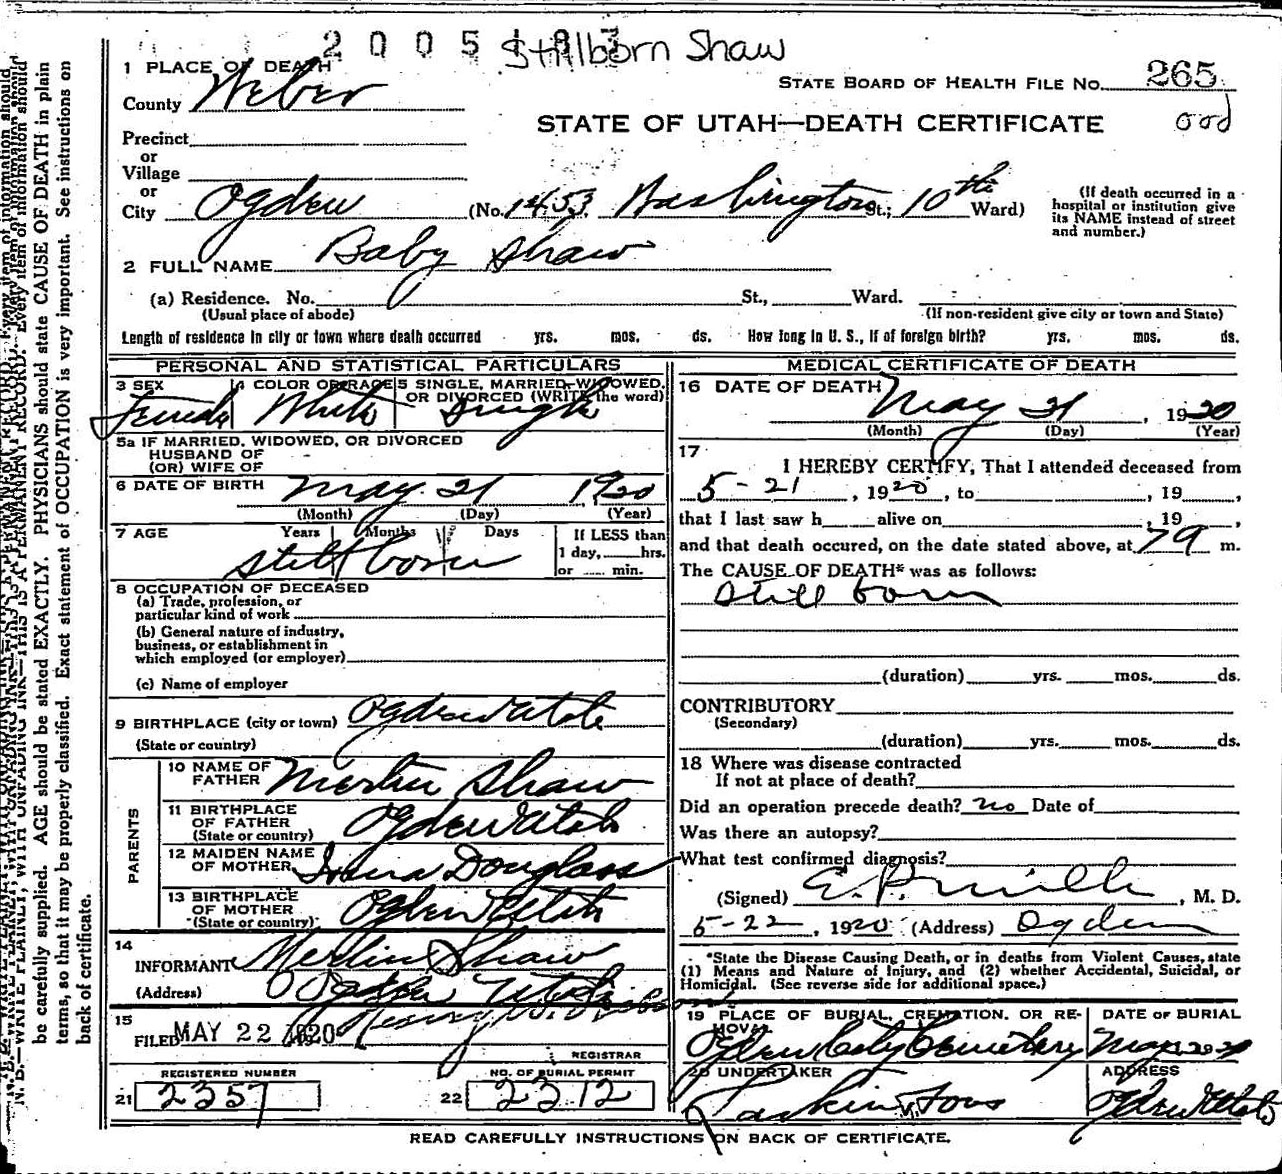 2005 Stillborn Shaw
1 PLACE OF DEATH
STATE BOARD OF HEALTH FILE No. 265
County Weber
STATE OF UTAH—DEATH CERTIFICATE
Precinct
or
Village
or
City Ogden (No. 1453 Washington St.; 10th Ward)
(If death occurred in a
hospital or institution give
its NAME instead of street
and number.)
2 FULL NAME Baby Shaw
(a) Residence. No. St., Ward.
(Usual place of abode) (If non-resident give city or town and State)
Length of residence in city or town where death occurred yrs. mos. ds. How long in U. S., if of foreign birth? yrs. mos. ds.
PERSONAL AND STATISTICAL PARTICULARS
3 SEX 4 COLOR OR RACE 5 SINGLE, MARRIED, WIDOWED,
OR DIVORCED (WRITE the word)
Female White Single
5a IF MARRIED, WIDOWED, OR DIVORCED
HUSBAND OF
(OR) WIFE OF
6 DATE OF BIRTH May 21 1920
(Month) (Day) (Year)
7 AGE Years Months Days If LESS than
1 day, hrs.
or min.
Still born
8 OCCUPATION OF DECEASED
(a) Trade, profession, or
particular kind of work
(b) General nature of industry,
business, or establishment in
which employed (or employer)
(c) Name of employer
9 BIRTHPLACE (city or town) Ogden Utah
(State or country)
PARENTS
10 NAME OF
FATHER Merlin Shaw
11 BIRTHPLACE
OF FATHER
(State or country) Ogden Utah
12 MAIDEN NAME
OF MOTHER Douglass
13 BIRTHPLACE
OF MOTHER
(State or country) Ogden Utah
14
INFORMANT Merlin Shaw
(Address) Ogden Utah
15
FILED MAY 22 1920
REGISTRAR
REGISTERED NUMBER NO. OF BURIAL PERMIT
21 2357 22 2312
MEDICAL CERTIFICATE OF DEATH
16 DATE OF DEATH May 21, 1920
(Month) (Day) (Year)
17
I HEREBY CERTIFY, That I attended deceased from
5-21, 1920, to , 19 ,
that I last saw h alive on , 19 ,
and that death occured, on the date stated above, at 79 m.
The CAUSE OF DEATH* was as follows:
Still born
(duration) yrs. mos. ds.
CONTRIBUTORY
(Secondary)
(duration) yrs. mos. ds.
18 Where was disease contracted
If not at place of death?
Did an operation precede death? no Date of
Was there an autopsy?
What test confirmed diagnosis?
(Signed) E. P. , M. D.
5-22, 1920 (Address) Ogden
*State the Disease Causing Death, or in deaths from Violent Causes, state
(1) Means and Nature of Injury, and (2) whether Accidental, Suicidal, or
Homicidal. (See reverse side for additional space.)
19 PLACE OF BURIAL, CREMATION, OR RE-
MOVAL DATE OF BURIAL
Ogden City Cemetery May
20 UNDERTAKER ADDRESS
Larkin & Sons Ogden Utah
READ CAREFULLY INSTRUCTIONS ON BACK OF CERTIFICATE.
be carefully supplied. AGE should be stated EXACTLY. PHYSICIANS should state CAUSE OF DEATH in plain
terms, so that it may be properly classified. Exact statement of OCCUPATION is very important. See instructions on
back of certificate.